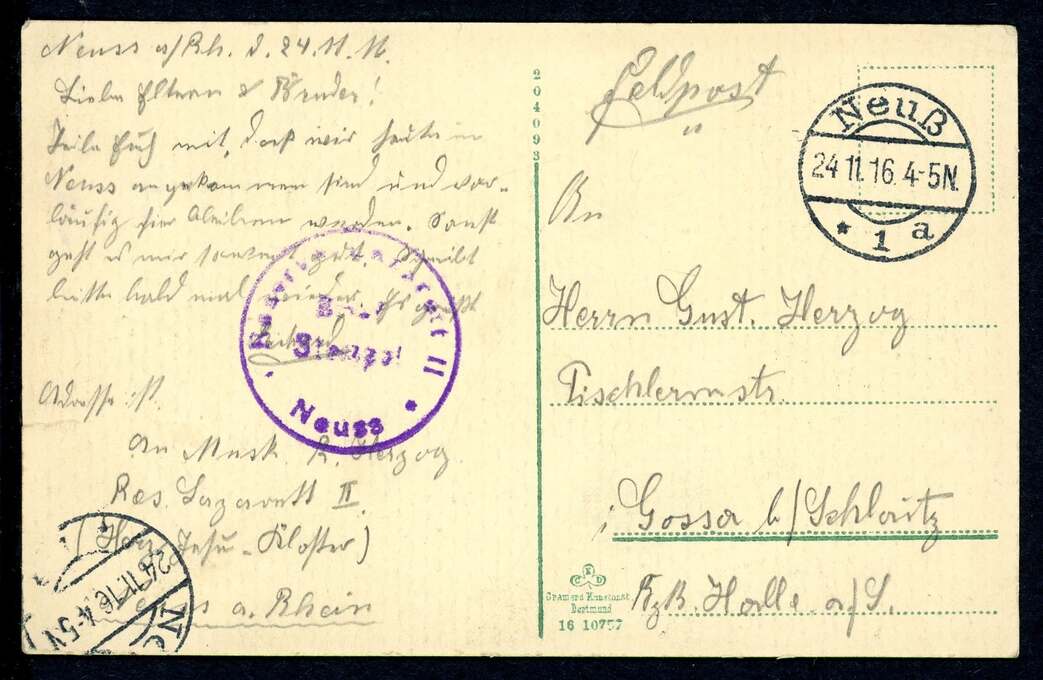 Neuss a/Rh. d. 24.11.16.
Liebe Eltern & Bruder!
Teile Euch mit, daß wir heute in
Neuss angekommen sind und vor-
läufig hier bleiben werden. Sonst
geht es mir soweit gut. Schreibt
bitte bald mal wieder. Es grüßt
Adresse ist.
An Musk. R. Herzog.
Res. Lazarett II.
(Herz-Jesu-Kloster)
Neuss a. Rhein
Reserve-Lazarett II
Neuss
24.11.16. 4-5N
204093
Cramers Kunstanst.
Dortmund
16 10757
Feldpost
Neuß
24.11.16. 4-5N.
* 1 a
An
Herrn Gust. Herzog
Tischlermstr.
i/ Gossa b/Schlaitz
Bzk. Halle a/S.